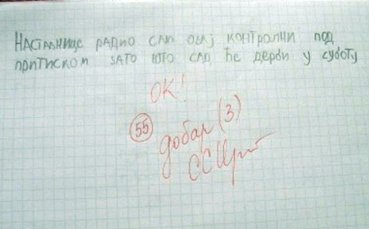 НАСТАВНИЦЕ РАДИО САМ ОВАЈ КОНТРОЛНИ ПОД
ПРИТИСКОМ ЗАТО ШТО САД ЋЕ ДЕРБИ У СУБОТУ
ОК!
55
добар (3)